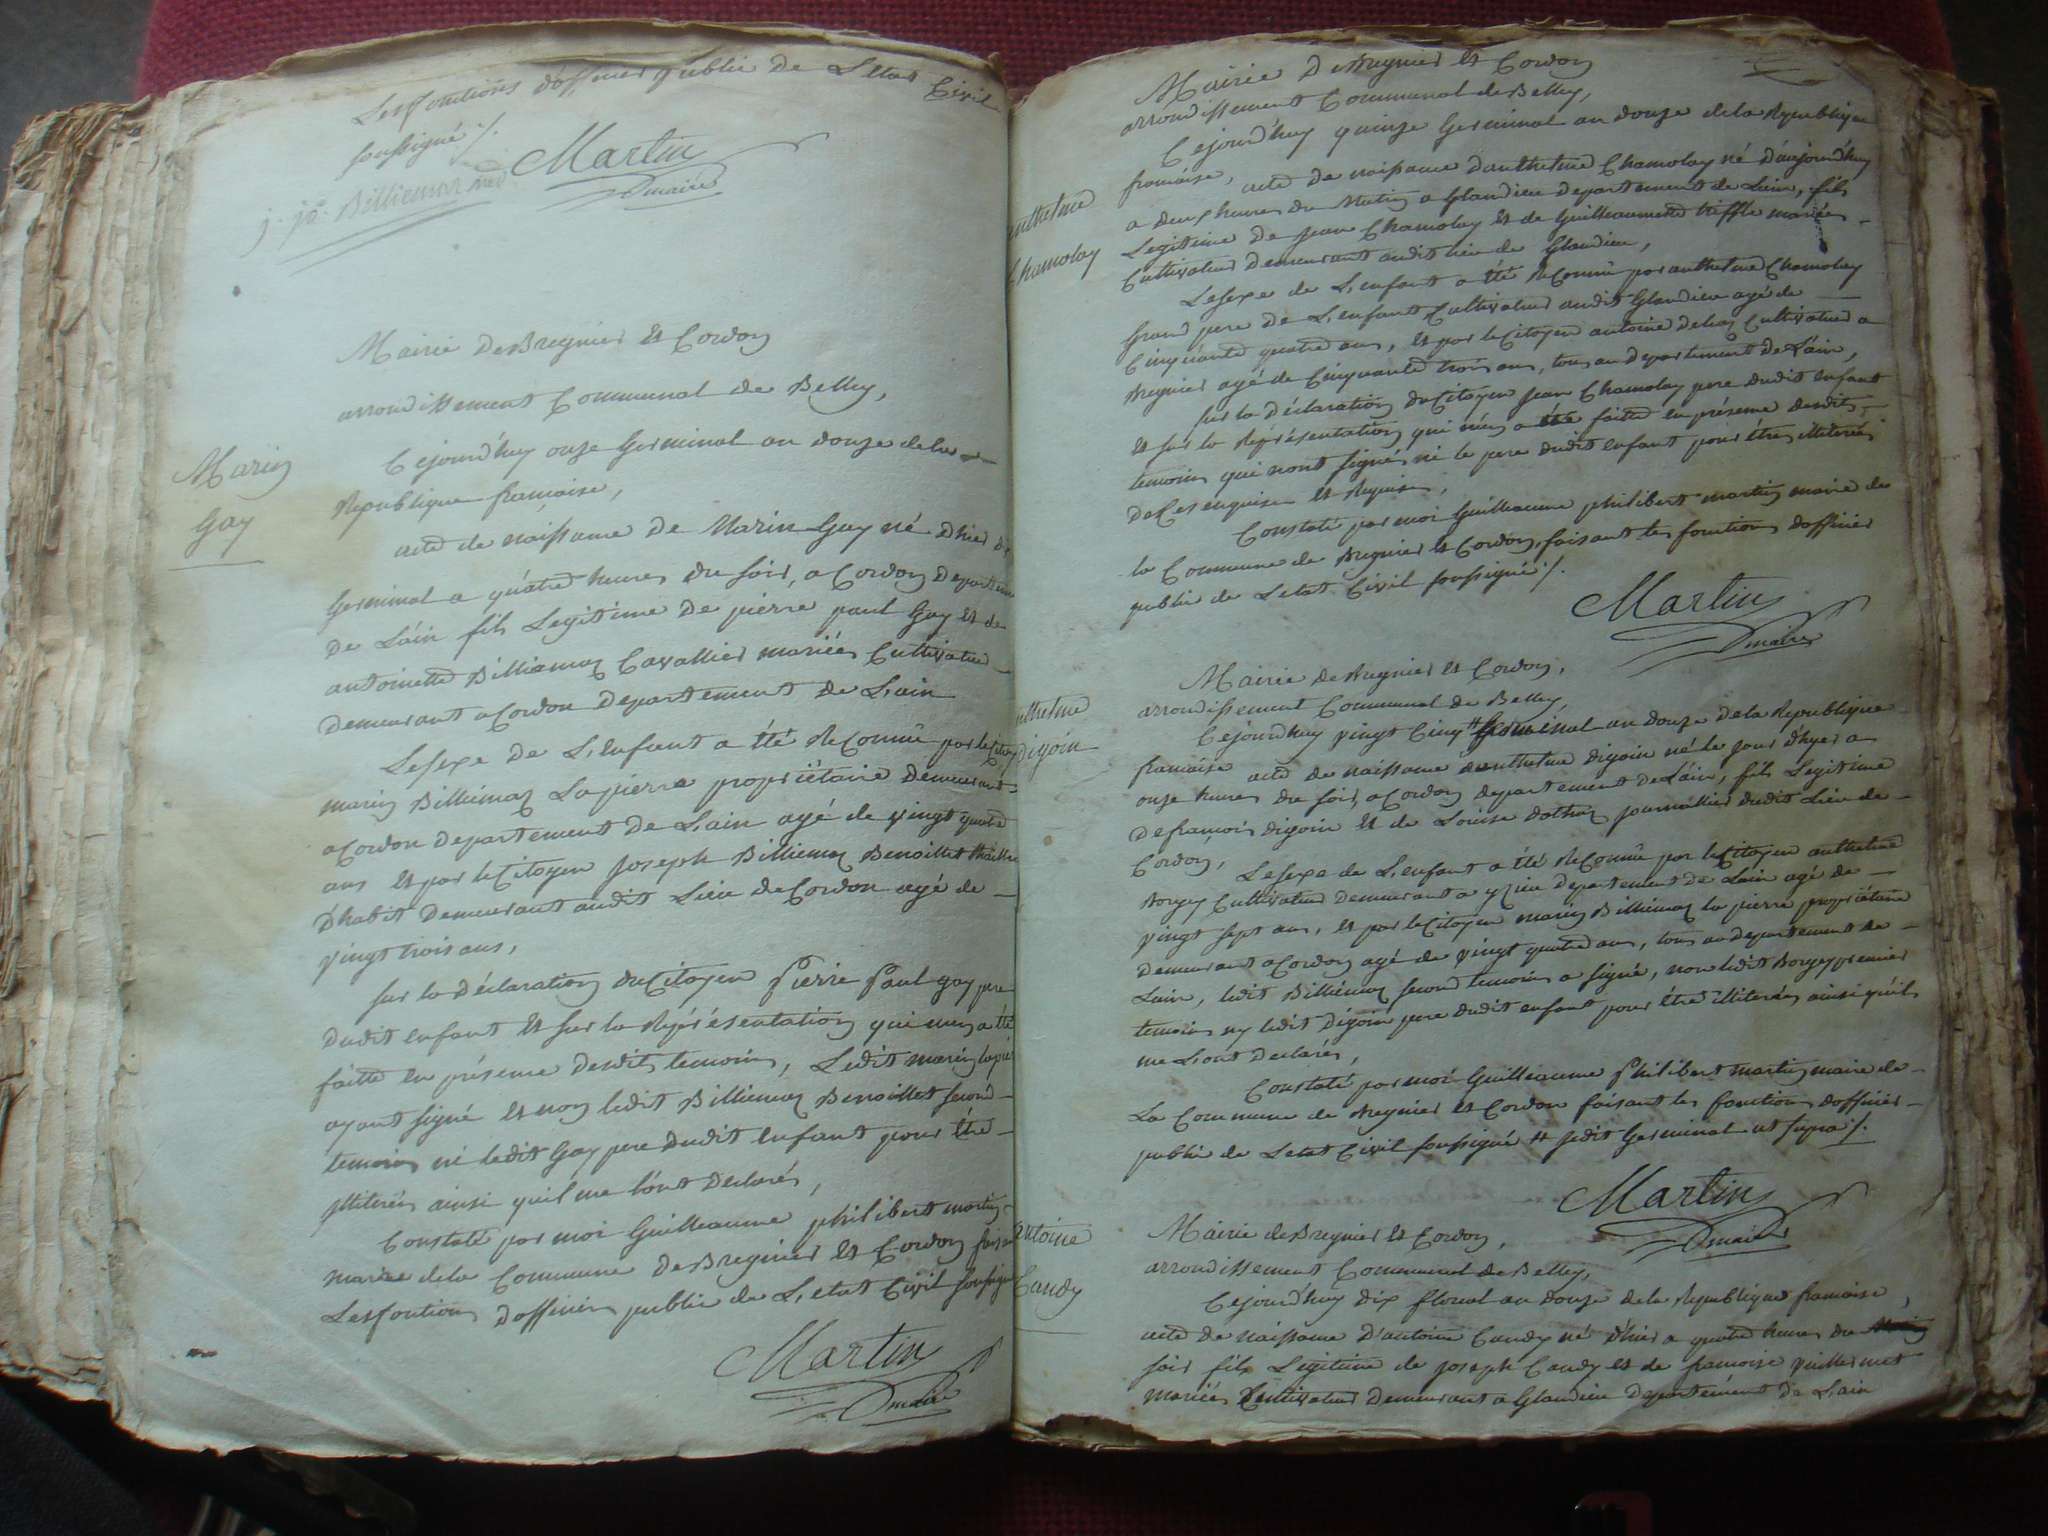 Les fonctions d'officier public de L'etat Civil
soussigné ./.
Martin
maire
j. ja. Billiemaz
Mairie de Bregnier et Cordon
arrondissement Communal de Belley,
Marin
Gay
Cejourd'huy onze Germinal an douze de la
République françoise,
acte de naissance de Marin Gay né d'hier dix
Germinal a quatre heures du soir, a Cordon departement
de L'ain fils Legitime de pierre paul Gay et de
antoinette Billiemaz Cavallier mariés Cultivateur
demeurant a Cordon departement de L'ain
Le sexe de L'enfant a été reconnû par le Citoyen
marin Billiemaz Lapierre propriétaire demeurant
a Cordon departement de L'ain agé de vingt quatre
ans et par le Citoyen Joseph Billiemaz Benoillet tailleur
d'habit demeurant audit Lieu de Cordon agé de
vingt trois ans,
sur la déclaration du Citoyen Pierre Paul gay pere
dudit enfant et sur la représentation qui m'en a été
faitte en présence desdits temoins, Ledit marin lapierre
ayant signé et non ledit Billiemaz Benoillet second
temoins ni ledit Gay pere dudit enfant pour être
illiterés ainsi qu'il me l'ont declarés,
Constaté par moi Guilleaume philibert martin
maire de la Commune de Bregnier et Cordon faisant
Les fontions d'officier public de L'etat Civil soussigné
Martin
maire
Mairie de Bregnier et Cordon
arrondissement Communal de Belley,
Cejourd'huy quinze Germinal an douze de la République
françoise,
anthelme
Chamolay
acte de naissance d'anthelme Chamolay né d'aujourd'huy
a deux heures du Matin a Glandieu departement de L'ain, fils
Legitime de jean Chamolay et de Guilleaumette triffle mariés
Cultivateur demeurant audit lieu de Glandieu,
Le sexe de L'enfant a été reconnû par anthelme Chamolay
Grand pere de L'enfant Cultivateur audit Glandieu agé de
Cinquante quatre ans, et par le Citoyen antoine delas Cultivateur a
Bregnier agé de Cinquante trois ans, tous au departement de L'ain,
sur la déclaration du Citoyen Jean Chamolay pere dudit enfant
et sur la représentation qui m'en a été faitte en présence desdits
temoins qui n'ont signés ni le pere dudit enfant pour être illiterés
de Ces enquis et requis,
Constaté par moi Guilleaume philibert martin maire de
la Commune de Bregnier et Cordon, faisant les fonctions d'officier
public de L'etat Civil soussigné ./.
Martin
maire
Mairie de Bregnier et Cordon,
arrondissement Communal de Belley,
anthelme
digoin
Cejourd'huy vingt Cinq # Germinal an douze de la République
françoise acte de naissance anthelme digoin né le jour d'hyer a
onze heures du soir, a Cordon departement de L'ain, fils Legitime
de françois digoin et de Louise dothaz journallier dudit Lieu de
Cordon,
Le sexe de L'enfant a été reconnû par le Citoyen anthelme
Borgey Cultivateur demeurant a yzieu departement de L'ain agé de
vingt sept ans, et par le Citoyen marin Billiemaz la pierre propriétaire
demeurant a Cordon agé de vingt quatre ans, tous au departement de
L'ain, ledit Billiemaz second temoins a signé, non ledit Borgey premier
temoins ny ledit digoin pere dudit enfant pour être illiterés ainsi qu'il
me L'ont declarés,
Constaté par moi Guilleaume Philibert martin maire de
La Commune de Bregnier et Cordon faisant les fonctions d'officier
public de L'etat Civil soussigné # jedit Germinal ut supra ./.
Martin
maire
Mairie de Bregnier et Cordon,
arrondissement Communal de Belley,
antoine
Candy
Cejourd'huy dix floreal an douze de la République françoise,
acte de naissance d'antoine Candy né d'hier a quatre heures du
soir fils Legitime de joseph Candy et de françoise vuillermet
mariés Cultivateur demeurant a Glandieu departement de L'ain